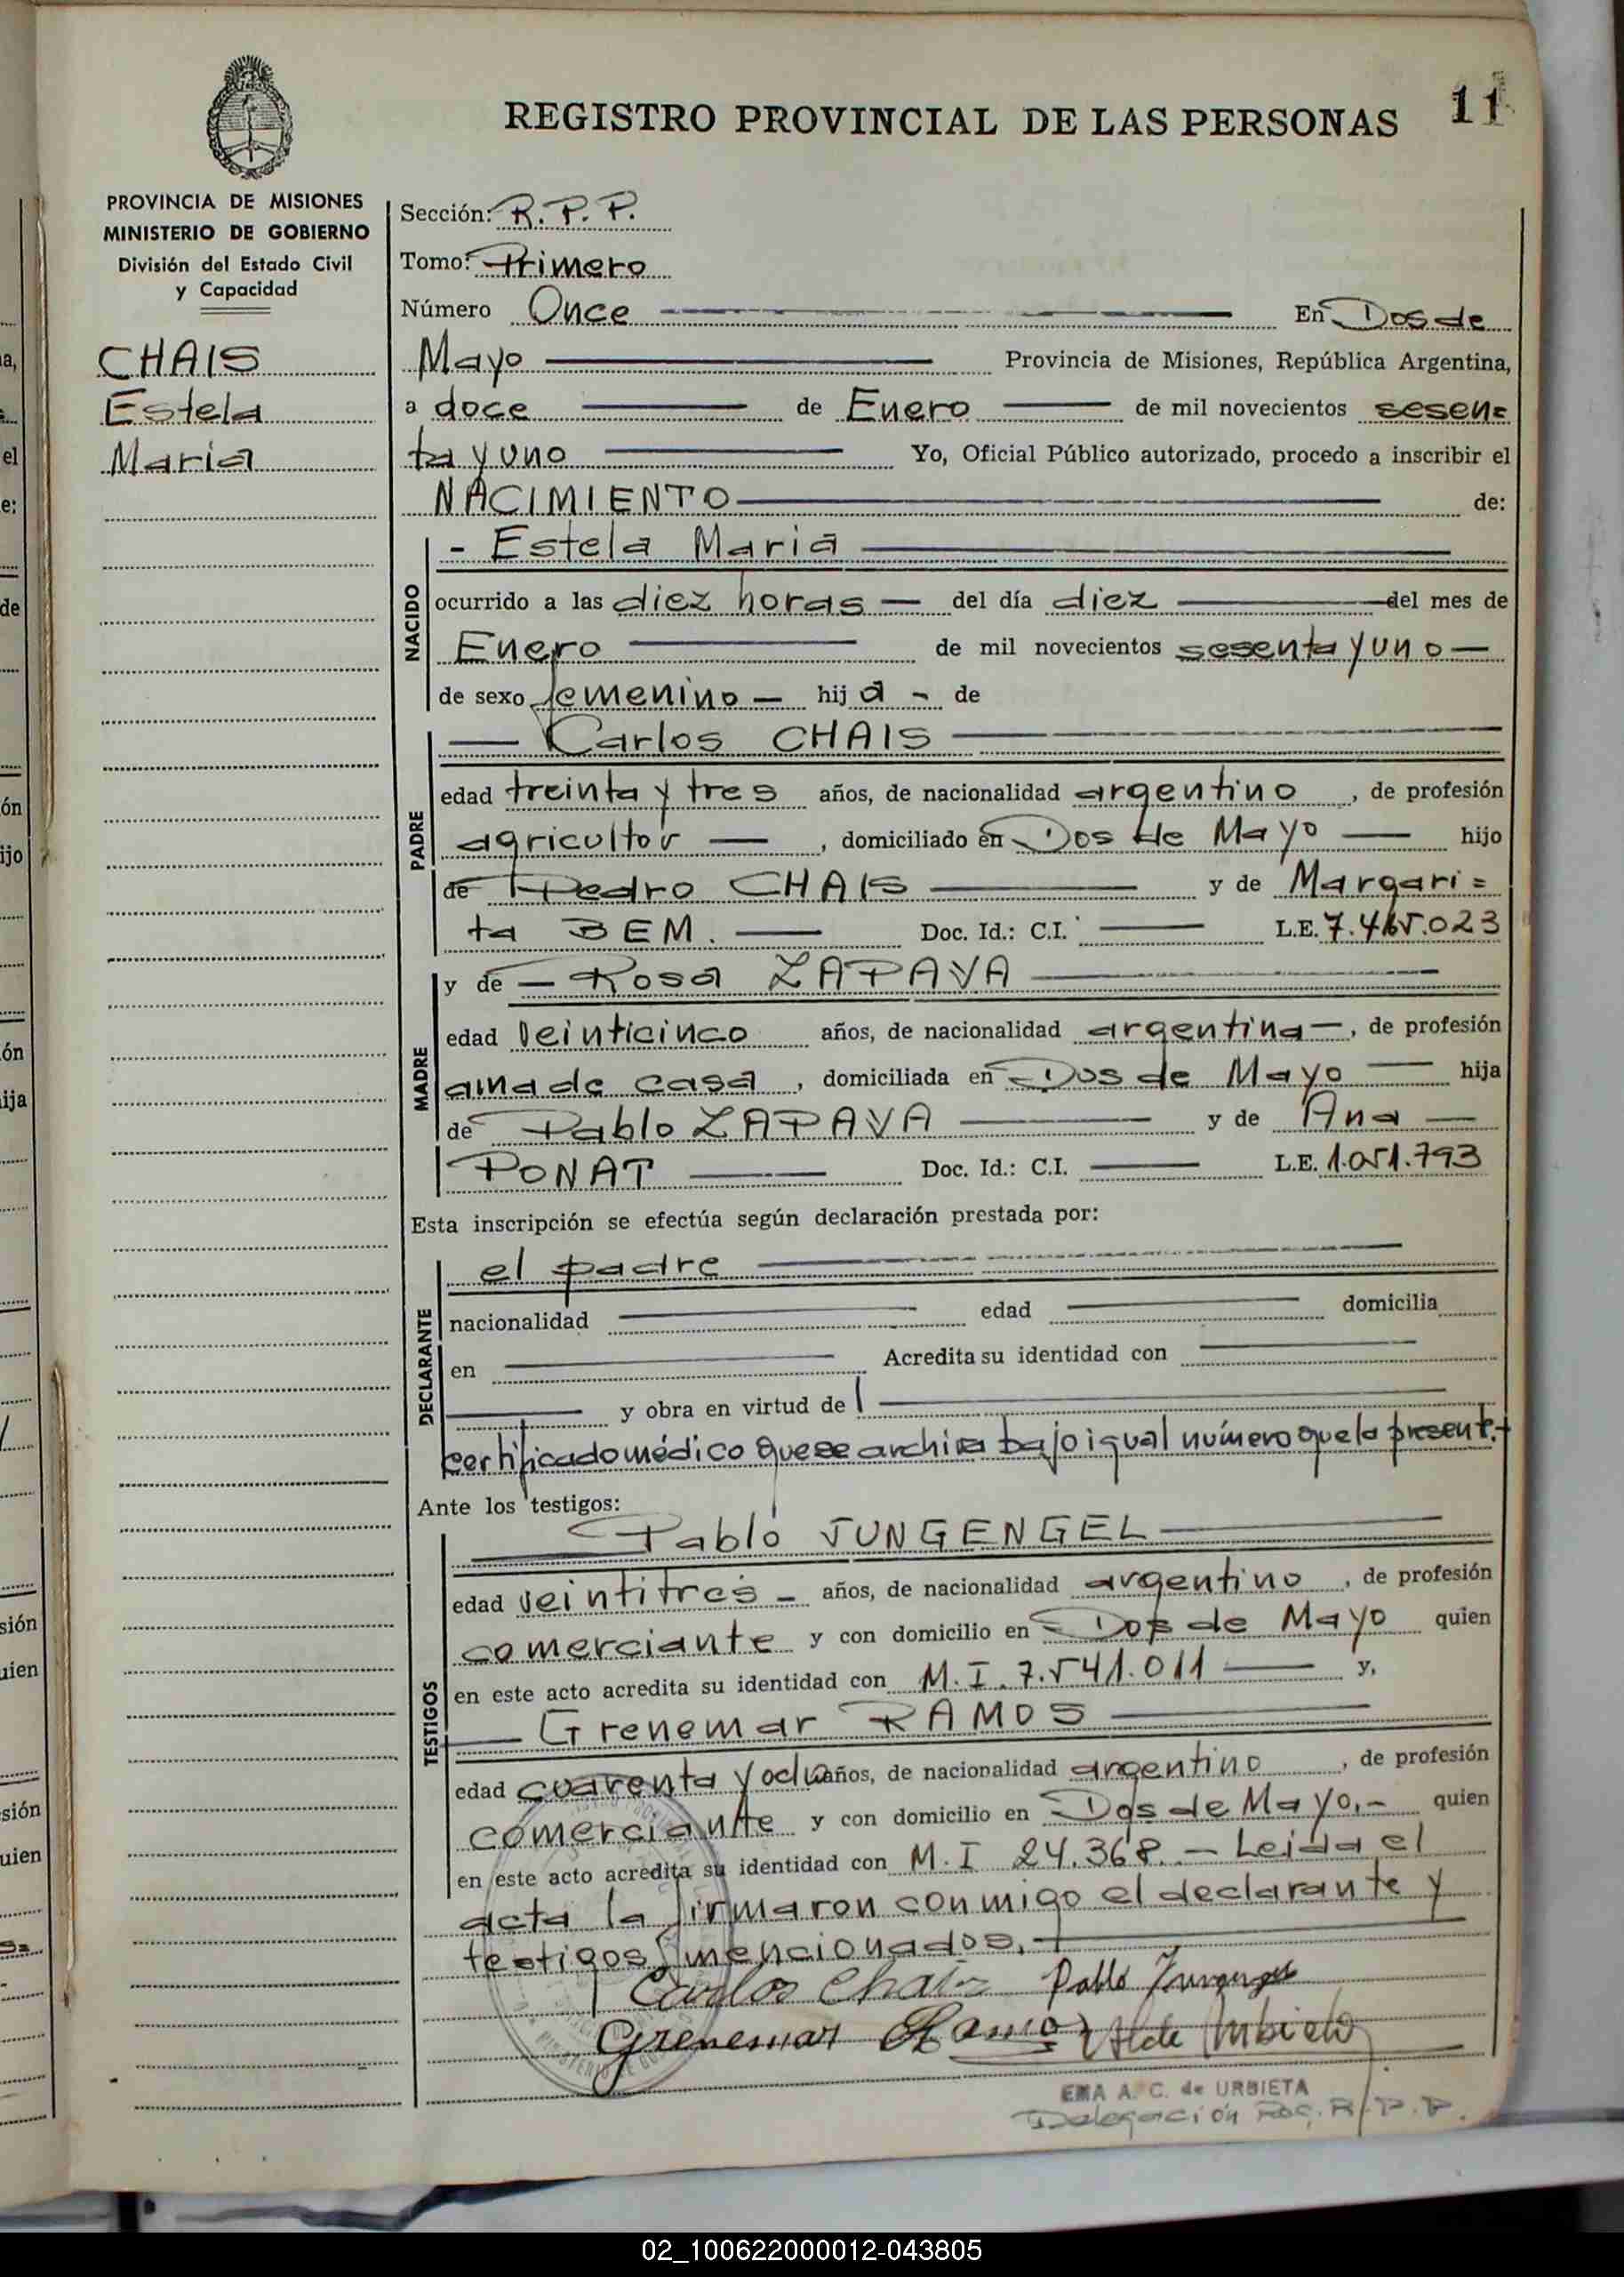 11
REGISTRO PROVINCIAL DE LAS PERSONAS
PROVINCIA DE MISIONES
MINISTERIO DE GOBIERNO
División del Estado Civil
y Capacidad
CHAIS
Estela
Maria
Sección: R. P. P.
Tomo: Primero
Número Once En Dos de
Mayo Provincia de Misiones, República Argentina,
a doce de Enero de mil novecientos sesen=
ta y uno Yo, Oficial Público autorizado, procedo a inscribir el
NACIMIENTO de:
NACIDO
- Estela Maria
ocurrido a las diez horas — del día diez del mes de
Enero de mil novecientos sesenta y uno —
de sexo femenino — hij a - de
PADRE
Carlos CHAIS
edad treinta y tres años, de nacionalidad argentino, de profesión
agricultor —, domiciliado en Dos de Mayo — hijo
de Pedro CHAIS y de Margari=
ta BEM. — Doc. Id.: C.I. — L.E. 7.465.023
MADRE
y de — Rosa ZAPAVA
edad veinticinco años, de nacionalidad argentina —, de profesión
ama de casa, domiciliada en Dos de Mayo — hija
de Pablo ZAPAVA y de Ana —
PONAT — Doc. Id.: C.I. — L.E. 1.051.793
Esta inscripción se efectúa según declaración prestada por:
DECLARANTE
el padre
nacionalidad edad domicilia
en Acredita su identidad con
y obra en virtud de
certificado médico que se archiva bajo igual número que la presente.
Ante los testigos:
TESTIGOS
Pablo JUNGENGEL
edad veintitres - años, de nacionalidad argentino, de profesión
comerciante y con domicilio en Dos de Mayo quien
en este acto acredita su identidad con M. I. 7.541.011 — y,
— Grenemar RAMOS
edad cuarenta y ocho años, de nacionalidad argentino, de profesión
comerciante y con domicilio en Dos de Mayo.- quien
en este acto acredita su identidad con M. I 24.368. — Leida el
acta la firmaron conmigo el declarante y
testigos mencionados.
Carlos Chais Pablo
Grenemar Ramos
EMA A. C. de URBIETA
Delegación R. P. P.
02_100622000012-043805